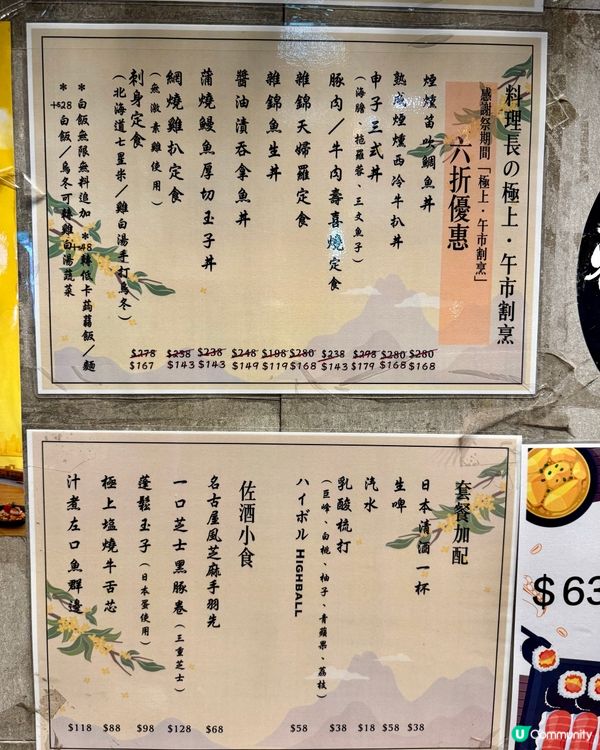 料理長の極上．午市割烹
感謝祭期間「極上．午市割烹」
六折優惠
煙燻笛吹鯛魚丼
熟成煙燻西冷牛扒丼
申子三式丼
（海膽、拖羅蓉、三文魚子）
豚肉／牛肉壽喜燒定食
雜錦天婦羅定食
雜錦魚生丼
醬油漬吞拿魚丼
蒲燒鰻魚厚切玉子丼
網燒雞扒定食
（無激素雞使用）
刺身定食
（北海道七星米／雞白湯手打烏冬）
*白飯無限無料追加 *+$8轉低卡蒟蒻飯／麵
*+$28白飯／烏冬可轉雞白湯蔬菜
$278 $238 $238 $248 $198 $280 $238 $298 $280 $280
$167 $143 $143 $149 $119 $168 $143 $179 $168 $168
套餐加配
日本清酒一杯
生啤
汽水
乳酸梳打
（巨峰、白桃、柚子、青蘋果、荔枝）
ハイボル HIGHBALL
佐酒小食
名古屋風芝麻手羽先
一口芝士黑豚卷（三重芝士）
蓬鬆玉子（日本蛋使用）
極上塩燒牛舌芯
汁煮左口魚群邊
$118 $88 $98 $128 $68 $58 $38 $18 $58 $38
$63
U Community